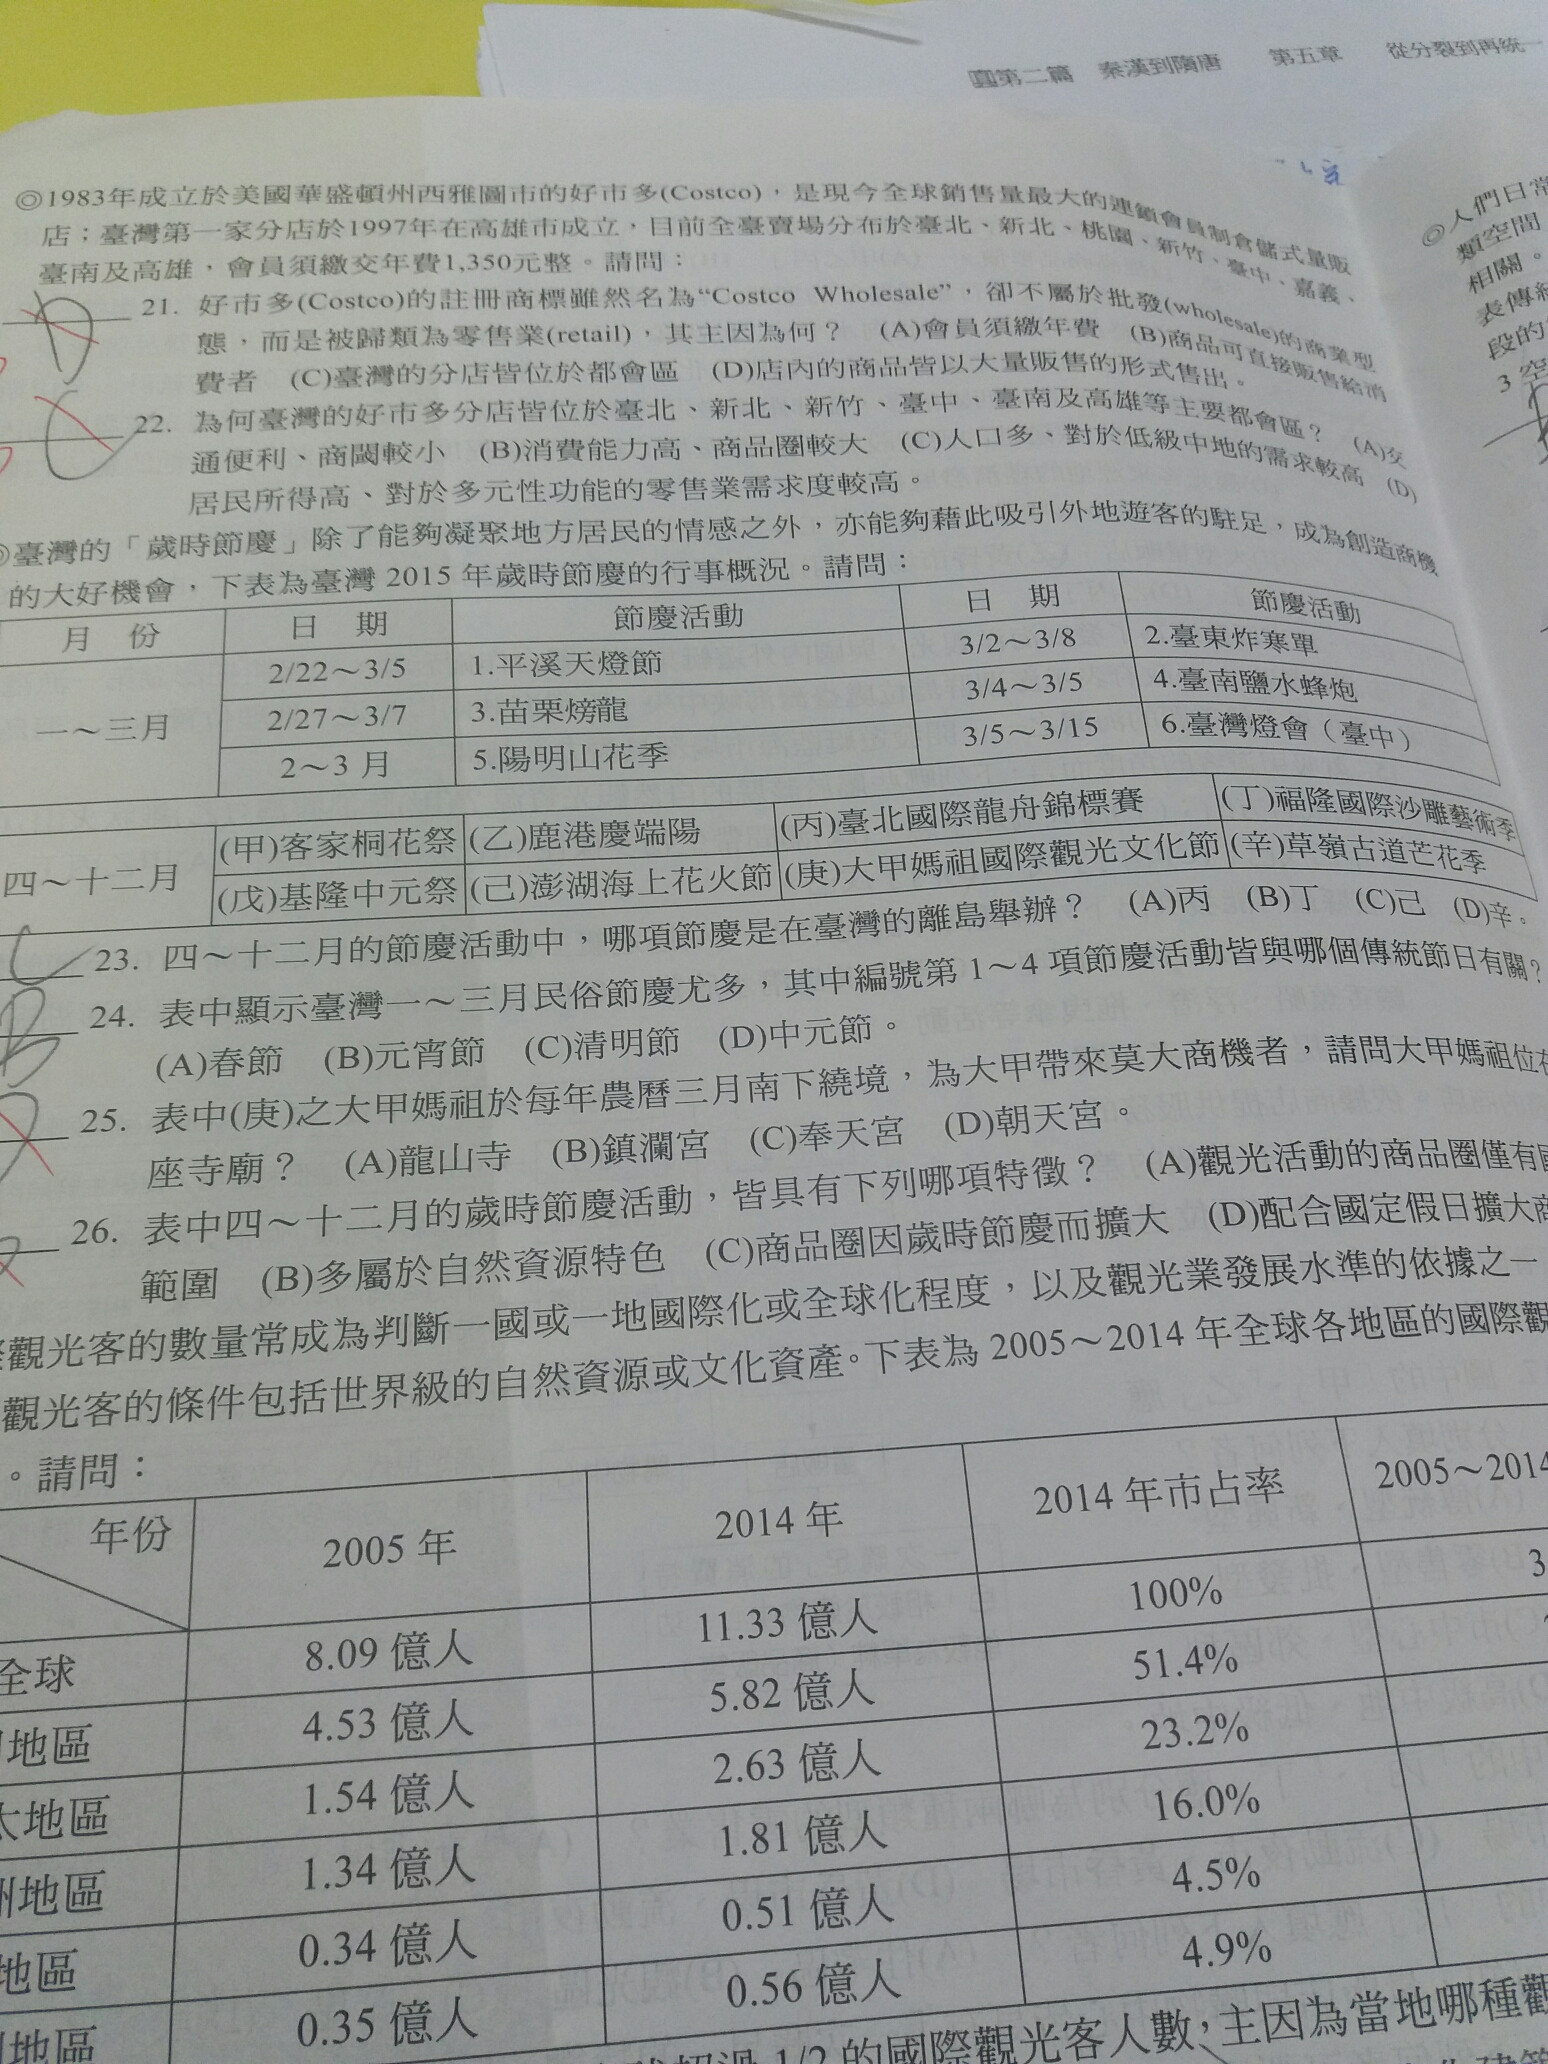 圓第二篇 秦漢到隋唐 第五章 從分裂到再統一
◎1983年成立於美國華盛頓州西雅圖市的好市多(Costco)，是現今全球銷售量最大的連鎖會員制倉儲式量販
店；臺灣第一家分店於1997年在高雄市成立，目前全臺賣場分布於臺北、新北、桃園、新竹、臺中、嘉義、
臺南及高雄，會員須繳交年費1,350元整。請問：
D 21. 好市多(Costco)的註冊商標雖然名為“Costco Wholesale”，卻不屬於批發(wholesale)的商業型
態，而是被歸類為零售業(retail)，其主因為何？ (A)會員須繳年費 (B)商品可直接販售給消
費者 (C)臺灣的分店皆位於都會區 (D)店內的商品皆以大量販售的形式售出。
C 22. 為何臺灣的好市多分店皆位於臺北、新北、新竹、臺中、臺南及高雄等主要都會區？ (A)交
通便利、商閾較小 (B)消費能力高、商品圈較大 (C)人口多、對於低級中地的需求較高 (D)
居民所得高、對於多元性功能的零售業需求度較高。
◎臺灣的「歲時節慶」除了能夠凝聚地方居民的情感之外，亦能夠藉此吸引外地遊客的駐足，成為創造商機
的大好機會，下表為臺灣 2015 年歲時節慶的行事概況。請問：
月 份 日 期 節慶活動 日 期 節慶活動
一～三月 2/22～3/5 1.平溪天燈節 3/2～3/8 2.臺東炸寒單
2/27～3/7 3.苗栗㷫龍 3/4～3/5 4.臺南鹽水蜂炮
2～3 月 5.陽明山花季 3/5～3/15 6.臺灣燈會（臺中）
四～十二月 (甲)客家桐花祭 (乙)鹿港慶端陽 (丙)臺北國際龍舟錦標賽 (丁)福隆國際沙雕藝術季
(戊)基隆中元祭 (己)澎湖海上花火節 (庚)大甲媽祖國際觀光文化節 (辛)草嶺古道芒花季
C 23. 四～十二月的節慶活動中，哪項節慶是在臺灣的離島舉辦？ (A)丙 (B)丁 (C)己 (D)辛。
B 24. 表中顯示臺灣一～三月民俗節慶尤多，其中編號第 1～4 項節慶活動皆與哪個傳統節日有關？
(A)春節 (B)元宵節 (C)清明節 (D)中元節。
25. 表中(庚)之大甲媽祖於每年農曆三月南下繞境，為大甲帶來莫大商機者，請問大甲媽祖位在
座寺廟？ (A)龍山寺 (B)鎮瀾宮 (C)奉天宮 (D)朝天宮。
26. 表中四～十二月的歲時節慶活動，皆具有下列哪項特徵？ (A)觀光活動的商品圈僅有
範圍 (B)多屬於自然資源特色 (C)商品圈因歲時節慶而擴大 (D)配合國定假日擴大
觀光客的數量常成為判斷一國或一地國際化或全球化程度，以及觀光業發展水準的依據之一
觀光客的條件包括世界級的自然資源或文化資產。下表為 2005～2014 年全球各地區的國際觀
。請問：
年份 2005 年 2014 年 2014 年市占率 2005～2014
全球 8.09 億人 11.33 億人 100% 3
地區 4.53 億人 5.82 億人 51.4%
太地區 1.54 億人 2.63 億人 23.2%
洲地區 1.34 億人 1.81 億人 16.0%
地區 0.34 億人 0.51 億人 4.5%
地區 0.35 億人 0.56 億人 4.9%
超過 1/2 的國際觀光客人數，主因為當地哪種觀
◎人們日常
類空間
相關。
表傳統
段的
3 空